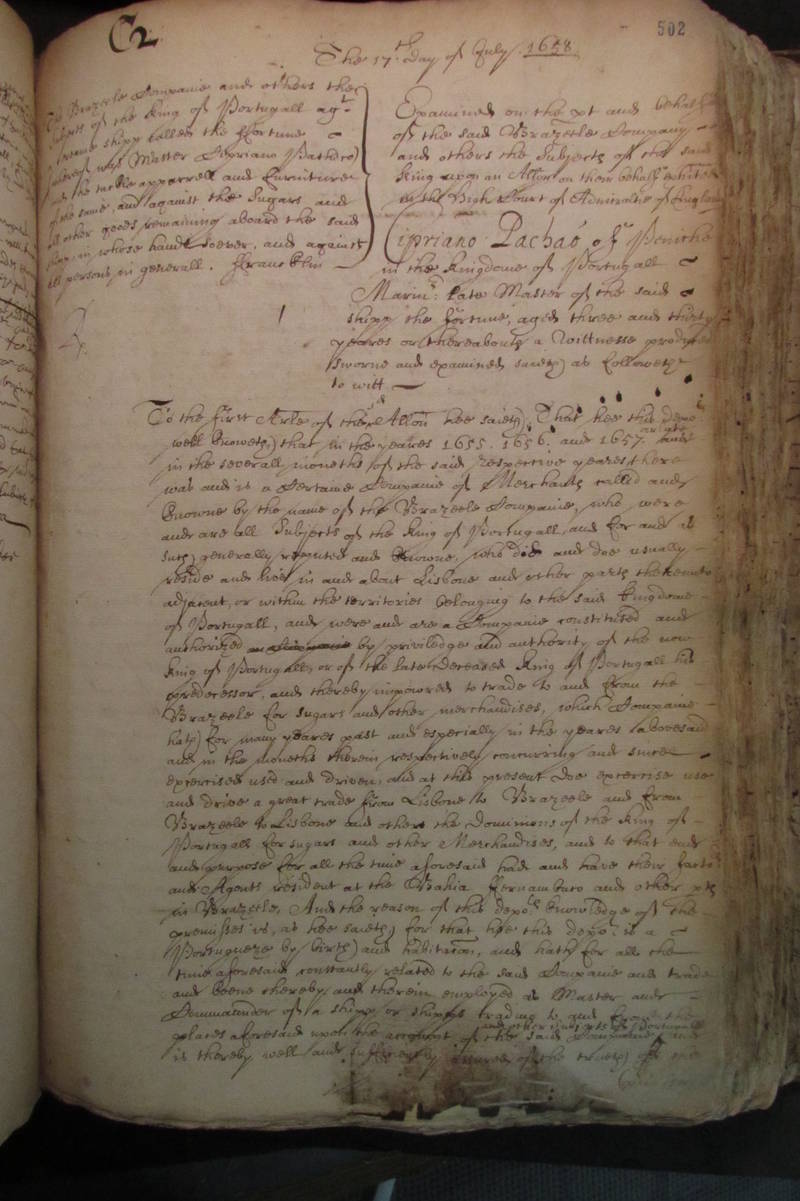 C2
502
The 17th Day of July 1658
The Brazeele Companie and others the
subjects of the King of Portugall agt
shipp called the ffortune
was Master Cipriano
and the tackle apparrell and furniture
of the same and against the Sugars and
other goods remaining aboard the said
shipp in whose hands soever, and against
all persons in generall. ffrancklin
Examined on the pt and behalfe
of the said Brazeele Company
and others the Subjects of the said
King upon an Allon on their behalfe
in the high Court of Admiraltie of England
Cipriano Pachaó of Peniche
in the Kingdome of Portugall
Marinr late Master of the said
shipp the ffortune, aged three and thirty
yeares or thereabouts a Wittnesse produced
sworne and examined saieth as followeth
to witt
To the first Arle of the said Allon hee saieth, That hee this depot
well knoweth that in the yeares 1655. 1656. and 1657.
in the severall moneths of the said respective yeares there
was and is a Certaine Companie of Merchants called and
knowne by the name of the Brazeele Companie, who were
and are all Subjects of the King of Portugall, and for and as
such generally reputed and knowne, who did and doe usually
reside and live in and about Lisbone and other parts thereunto
adjacent, or within the territories belonging to the said Kingdome
of Portugall, and were and are a Companie constituted and
authorized by priviledge and authority of the now
King of Portugall, or of the late deceased King of Portugall his
predecessor, and thereby impowered to trade to and from the
Brazeele for sugars and other merchandises, which Companie
hath for many yeares past and especially in the yeares abovesaid
and in the moneths therein respectively concurring and since
exercised used and driven, and at this present doe exercise use
and drive a great trade from Lisbone to Brazeele and from
Brazeele to Lisbone and others the Dominions of the King of
Portugall for sugars and other Merchandises, and to that end
and purpose for all the time aforesaid had and have their factors
and Agents resident at the Bahia ffernambuco and other pts
in Brazeele, And the reason of this depots knowledge of the
premisses is, as hee saieth, for that hee this depot is a
Portugueze by birth and habitacon, and hath for all the
time aforesaid constantly related to the said Companie and trade
and beene thereby and therein employed as Master and
Commaunder of a shipp or shipps trading to and from the
places aforesaid upon the account of the said Companie and other subjects of Portugall and
is thereby well and sufficiently assured of the truth of the